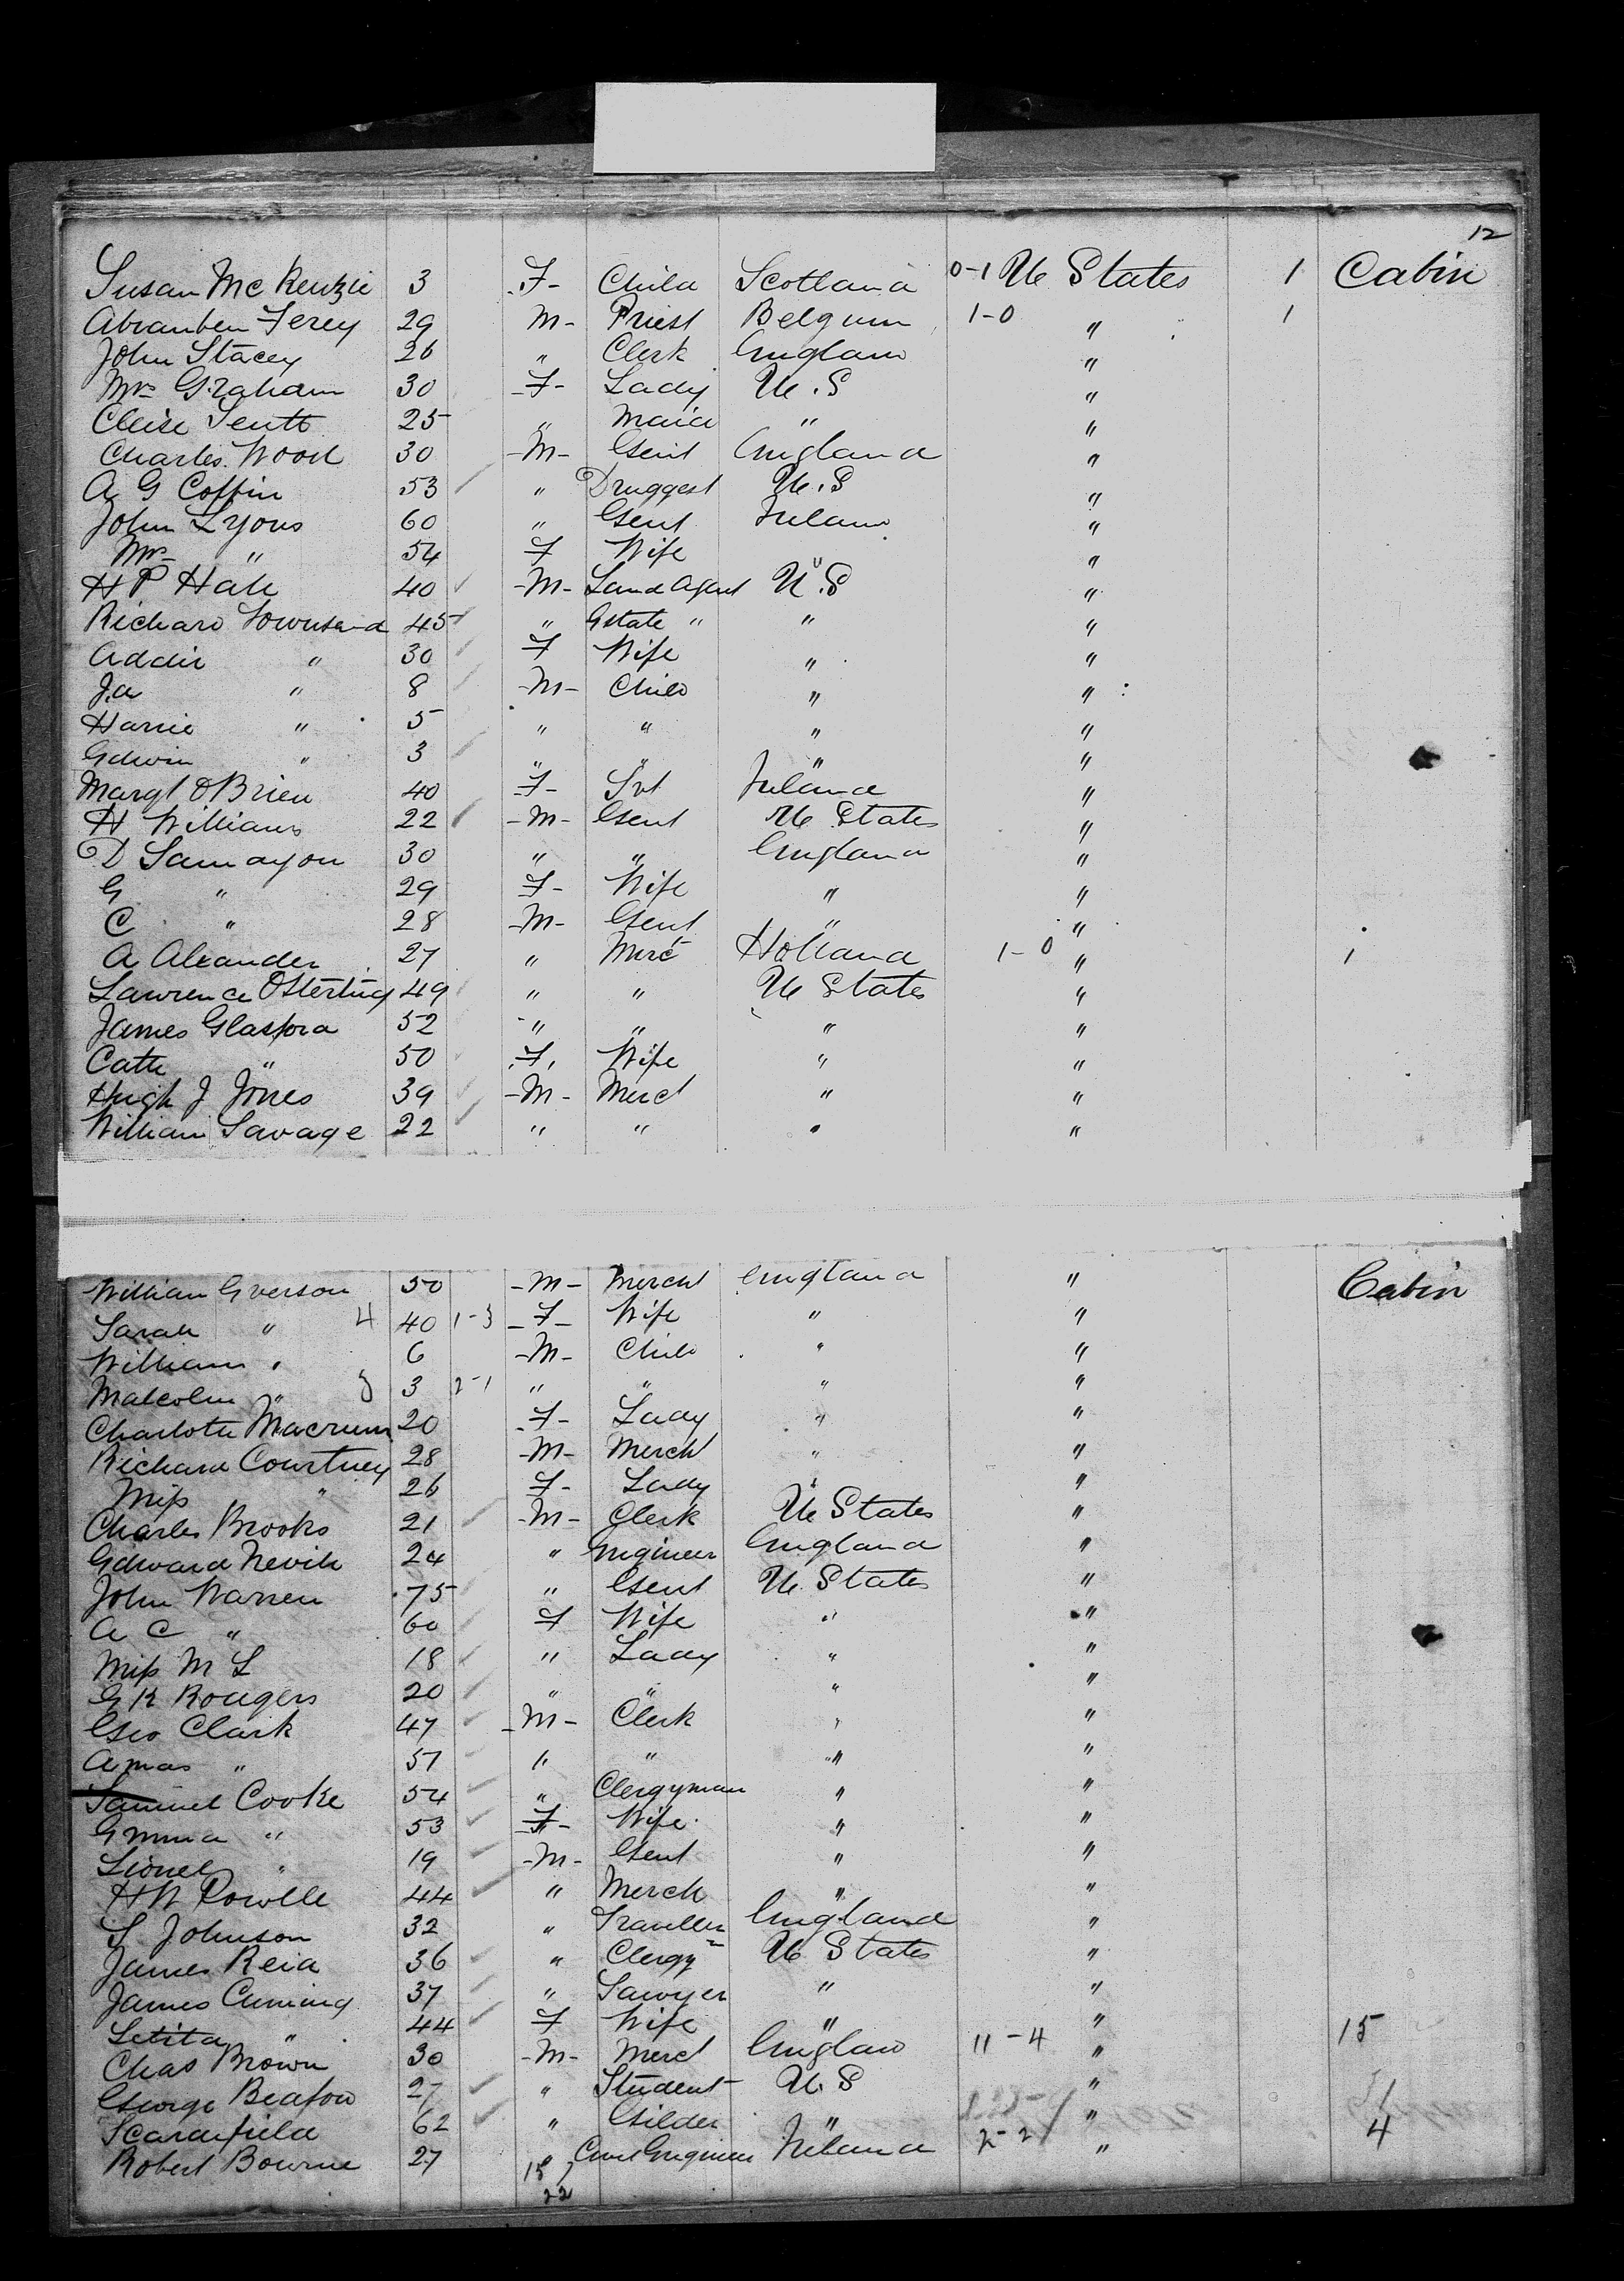 12
Susan McKenzie 3 F- Child Scotland 0-1 U States 1 Cabin
Ferey 29 M- Priest Belgium 1-0 " 1
John Stacey 26 " Clerk England "
Mrs Graham 30 -F- Lady U.S "
25 " Maid " "
Charles Wood 30 -M- Gent England "
A G Coffin 53 " Druggest U.S "
John Lyons 60 " Gent Ireland "
Mrs " 54 F Wife " "
H P Hall 40 -M- Land Agent U.S "
Richard Townsend 45 " Estate " " "
Addie " 30 F Wife " "
Ja " 8 -M- Child " "
Harrie " 5 " " " "
Edwin " 3 " " " "
Margt O'Brien 40 -F- Svt Ireland "
H Williams 22 -M- Gent U States "
D Samayon 30 " " England "
G " 29 F- Wife " "
C " 28 -M- Gent " "
A Alexander 27 " Merct Holland 1-0 " 1
Lawrence Osterting 49 " " U States "
James Glasford 52 " " " "
Cath " 50 F. Wife " "
Hugh J Jones 39 -M- Merct " "
William Savage 22 " " " "
William Everson 50 -M- Mercht England " Cabin
Sarah " 4 40 1-3 -F- Wife " "
William " 6 -M- Child " "
Malcolm " 3 3 2-1 " " " "
Charlotte Macrum 20 -F- Lady " "
Richard Courtney 28 -M- Mercht " "
Miss " 26 F- Lady " "
Charles Brooks 21 -M- Clerk U States "
Edward Nevill 24 " Engineer England "
John Warren 75 " Gent U. States "
A C " 60 F Wife " "
Miss M L 18 " Lady " "
G R Rougers 20 " " " "
Geo Clark 47 -M- Clerk " "
Amas " 51 " " " "
Samuel Cooke 54 " Clergyman " "
Emma " 53 -F- Wife " "
Lionel " 19 -M- Gent " "
H W Powlle 44 " Merch " "
S Johnson 32 " Traveller England "
James Reid 36 " Clergy U States "
James Cuming 37 " Sawyer " "
Letita " 44 F Wife " "
Chas Brown 30 -M- Merct England 11-4 " 15
George 27 " Student U.S "
Scarafield 62 " Gilder " "
Robert Bourne 27 " Civil Engineer Ireland 2-2 " 4
15 7
22